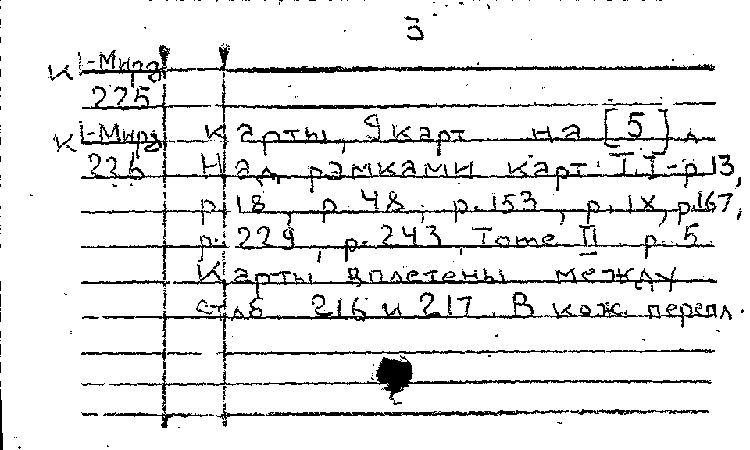 3
К I-Мирз
225
К I-Мирз Карты, 9 карт на [5] л
226 Над рамками карт: T.I-p 13,
p 18, p. 48, p. 153, p. IX, p. 167,
p. 229, p. 243, Tome II p. 5.
Карты вплетены между
стлб 216 и 217. В кож. перепл.